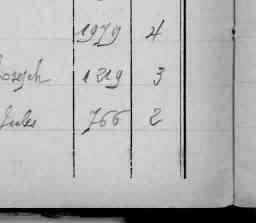 1979 4
Joseph 1219 3
Jules 766 2